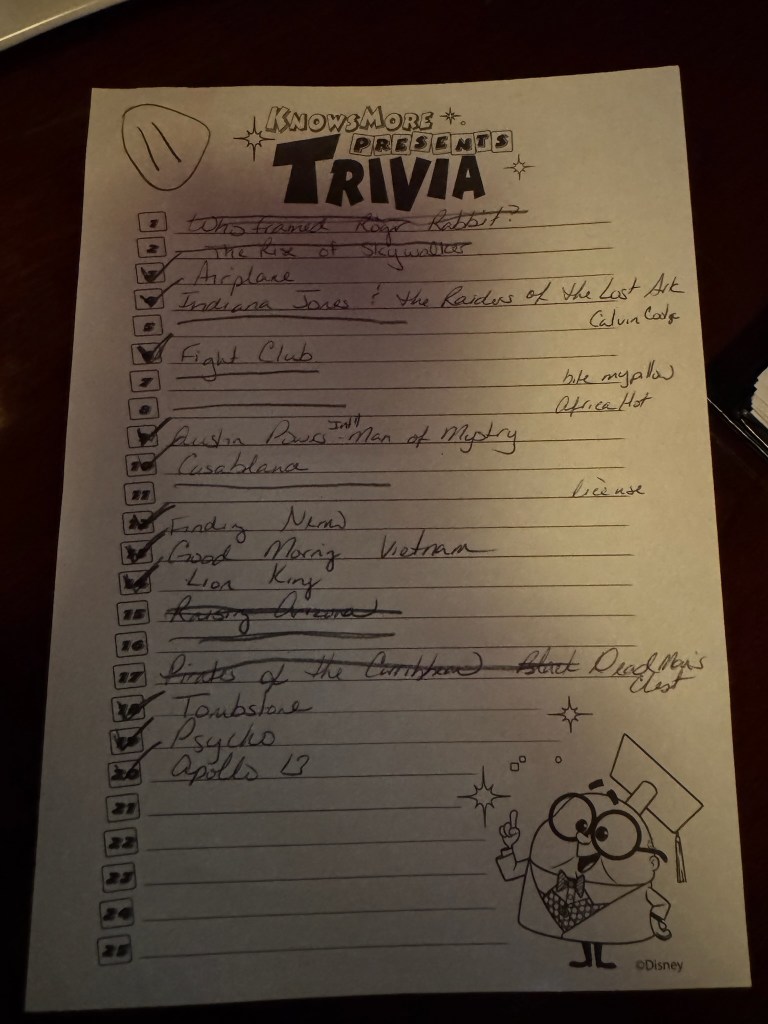 11
KNOWSMORE
PRESENTS
TRIVIA
1 Who framed Roger Rabbit?
2 The Rise of Skywalker
3 Airplane
4 Indiana Jones & the Raiders of the Lost Ark
5 Calvin
6 Fight Club
7 bite my pillow
8 Africa Hot
9 Austin Powers Int'l Man of Mystry
10 Casablanca
11 license
12 Finding Nemo
13 Good Morning Vietnam
14 Lion King
15 Raising Arizona
16
17 Pirates of the Carribbean Black Dead Man's
Chest
18 Tombstone
19 Psycho
20 Apollo 13
21
22
23
24
25
©Disney